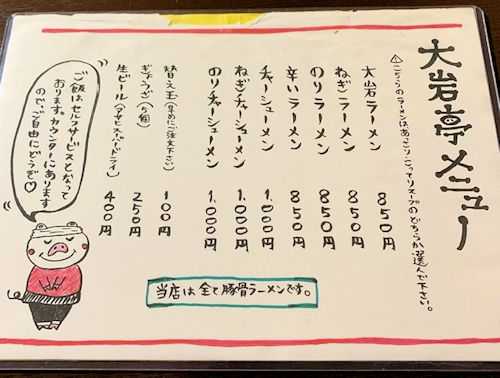 大岩亭メニュー
⚠こちらのラーメンはあっさり・こってりスープのどちらか選んで下さい。
大岩ラーメン 850円
ねぎラーメン 850円
のりラーメン 850円
辛いラーメン 850円
チャーシューメン 1,000円
ねぎチャーシューメン 1,000円
のりチャーシューメン 1,000円
替え玉(早めにご注文下さい) 100円
ぎょうざ(5個) 250円
生ビール(アサヒスーパードライ) 400円
ご飯はセルフサービスとなって
おります。カウンターにあります
ので、ご自由にどうぞ♡
当店は全て豚骨ラーメンです。